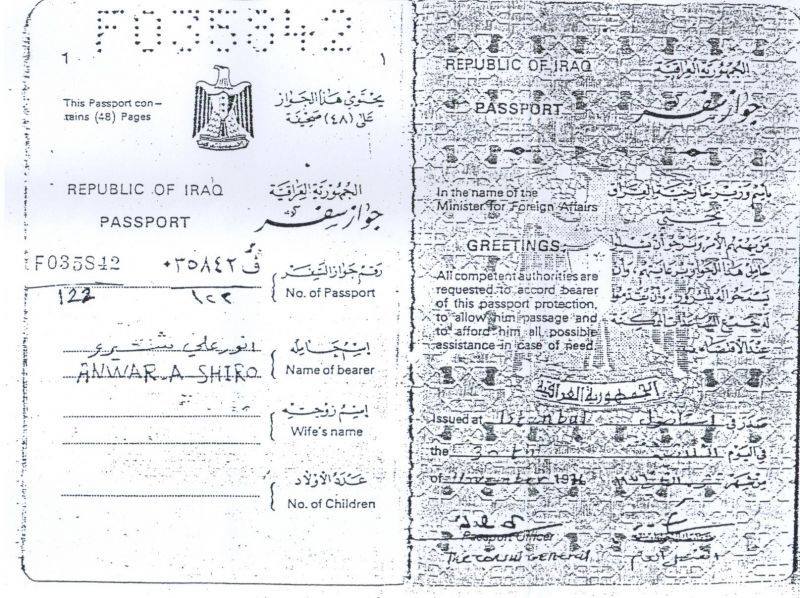 F035842
1
١
This Passport con-
tains (48) Pages
يحتوي هذا الجواز
على (٤٨) صحيفة
REPUBLIC OF IRAQ
الجمهورية العراقية
PASSPORT
جواز سفر
F035842
٠٣٥٨٤٢ ف
رقم جواز السفر
No. of Passport
122
١٢٢
انور علي
اسم حامله
ANWAR.A SHIRO
Name of bearer
اسم زوجته
Wife's name
عدد الاولاد
No. of Children
REPUBLIC OF IRAQ
الجمهورية العراقية
PASSPORT
جواز سفر
In the name of the
Minister for Foreign Affairs
باسم وزير خارجية العراق
GREETINGS:
All competent authorities are
requested to accord bearer
of this passport protection,
to allow him passage and
to afford him all possible
assistance in case of need.
عند الاقتضاء
الجمهورية العراقية
Issued at Istanbul
صدر في
the 30th
في اليوم
of November 19
من شهر
Passport Officer
The Consul General
القنصل العام